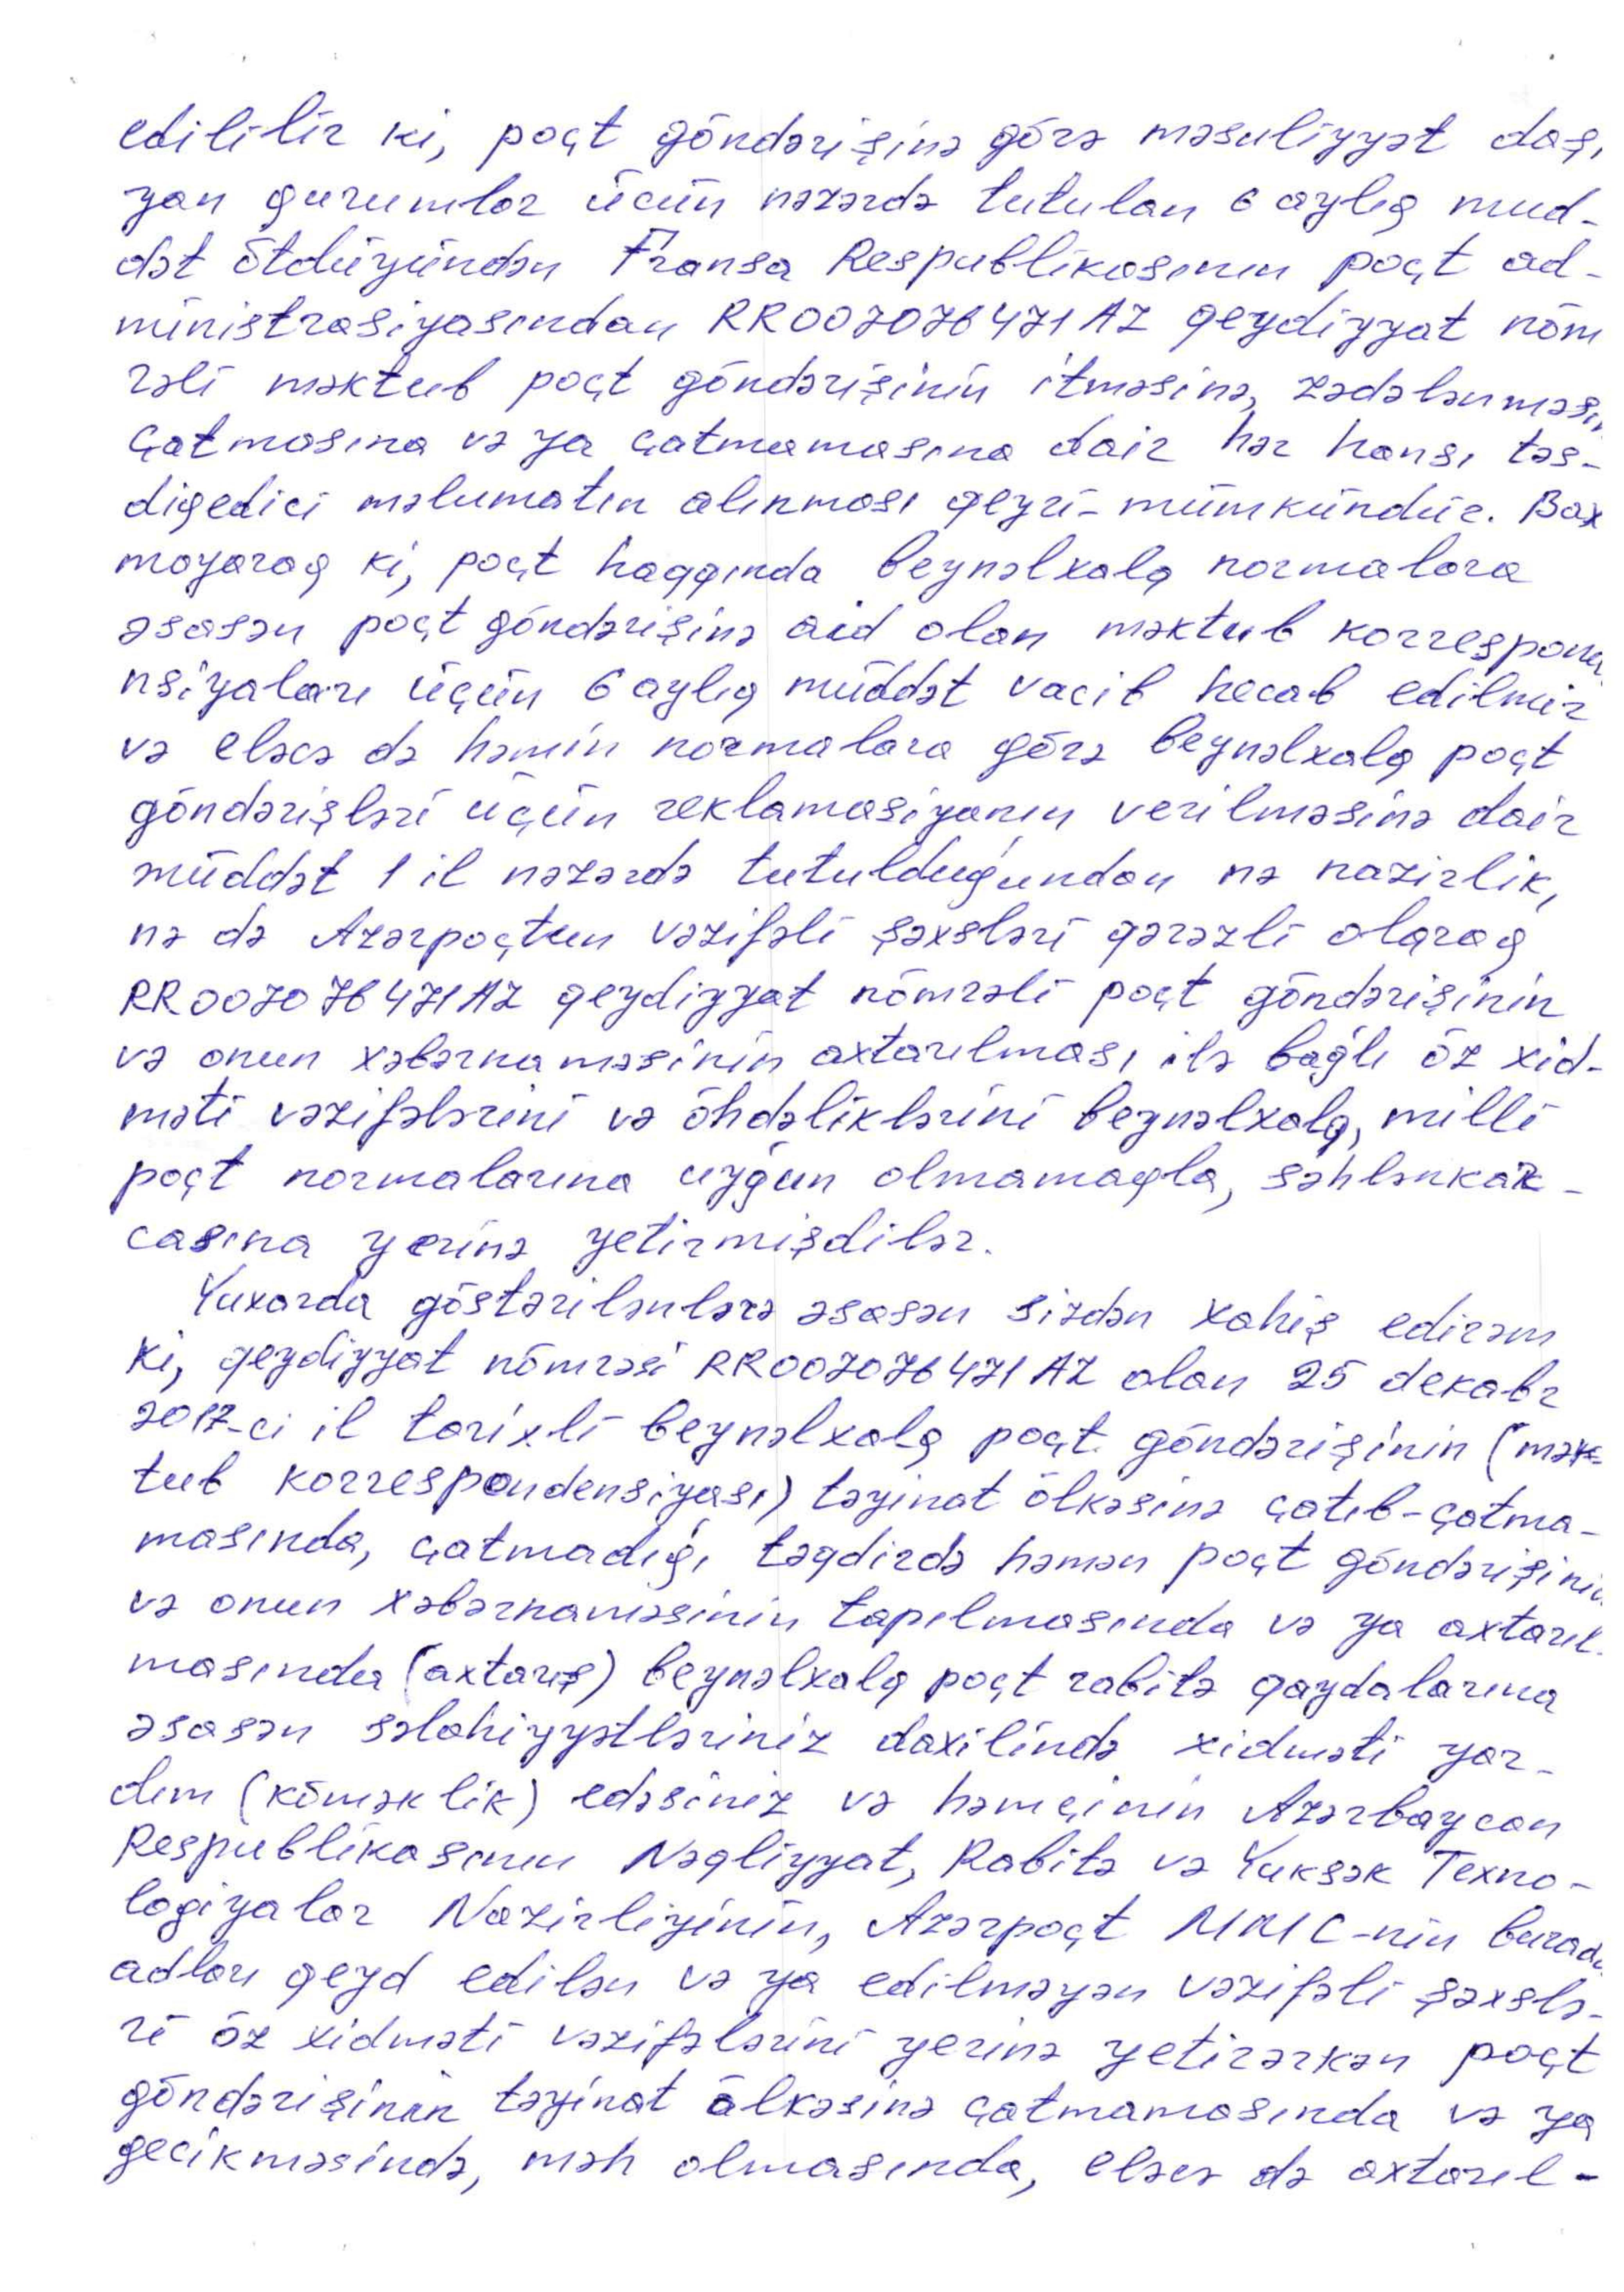 edililir ki, poçt göndərişinə görə məsuliyyət daşı
yan qurumlar üçün nəzərdə tutulan 6 aylıq mud-
dət ötdüyündən Fransa Respublikasının poçt ad-
ministrasiyasından RR007076471AZ qeydiyyat nöm
rəli məktub poçt göndərişinin itməsinə, zədələnməsin
çatmasına və ya çatmamasına dair hər hansı təs-
diqedici məlumatın alınması qeyri-mümkündür. Bax
mayaraq ki, poçt haqqında beynəlxalq normalara
əsasən poçt göndərişinə aid olan məktub korrespond
nsiyaları üçün 6 aylıq müddət vacib hecab edilmir
və eləcə də həmin normalara görə beynəlxalq poçt
göndərişləri üçün reklamasiyanın verilməsinə dair
müddət 1 il nəzərdə tutulduğundan nə nazirlik,
nə də Azərpoçtun vəzifəli şəxsləri qərəzli olaraq
RR007076471AZ qeydiyyat nömrəli poçt göndərişinin
və onun xəbərnaməsinin axtarılması ilə bağlı öz xid-
məti vəzifələrini və öhdəliklərini beynəlxalq, milli
poçt normalarına uyğun olmamaqla, səhlənkar-
casına yerinə yetirmişdilər.
Yuxarda göstərilənlərə əsasən sizdən xahiş edirəm
ki, qeydiyyat nömrəsi RR007076471AZ olan 25 dekabr
2017-ci il tarixli beynəlxalq poçt göndərişinin (mək-
tub korrespondensiyası) təyinat ölkəsinə çatıb-çatma-
masında, çatmadığı təqdirdə həmən poçt göndərişinin
və onun xəbərnaməsinin tapılmasında və ya axtarıl-
masında (axtarış) beynəlxalq poçt rabitə qaydalarına
əsasən səlahiyyətləriniz daxilində xidməti yar-
dım (köməklik) edəsiniz və həmçinin Azərbaycan
Respublikasının Nəqliyyat, Rabitə və Yuksək Texno-
logiyalar Nazirliyinin, Azərpoçt MMC-nin burada
adları qeyd edilən və ya edilməyən vəzifəli şəxslə-
ri öz xidməti vəzifələrini yerinə yetirərkən poçt
göndərişinin təyinat ölkəsinə çatmamasında və ya
gecikməsində, məh olmasında, eləcə də axtarıl-